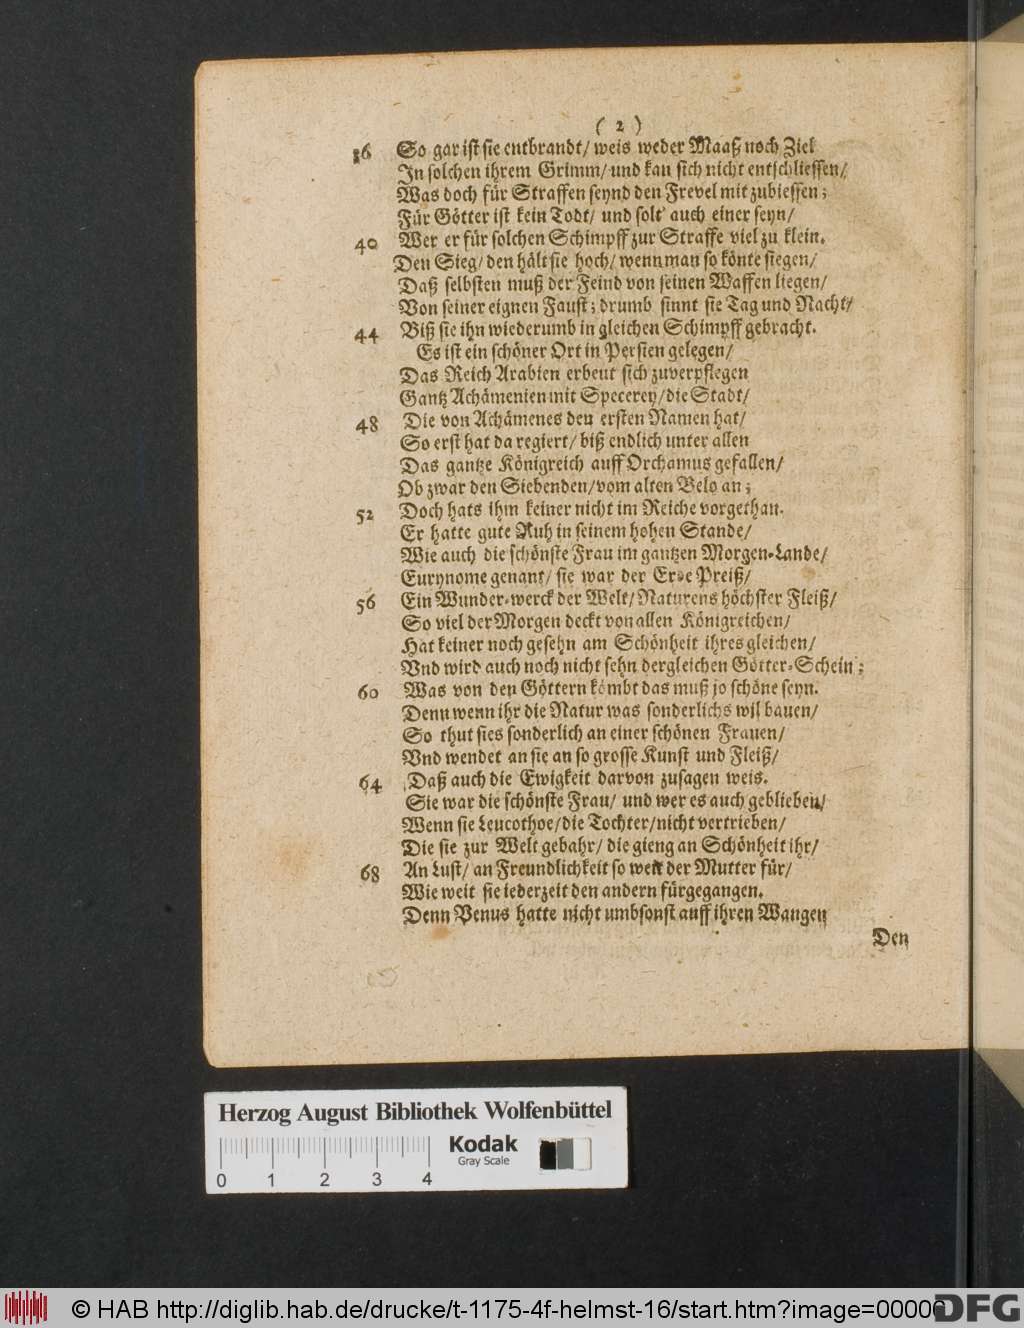 ( 2 )
36 So gar ist sie entbrandt/ weis weder Maaß noch Ziel
In solchen ihrem Grimm/ und kan sich nicht entschliessen/
Was doch für Straffen seynd den Frevel mit zubiessen;
Für Götter ist kein Todt/ und solt' auch einer seyn/
40 Wer er für solchen Schimpff zur Straffe viel zu klein.
Den Sieg/ den hält sie hoch/ wenn man so könte siegen/
Daß selbsten muß der Feind von seinen Waffen liegen/
Von seiner eignen Faust; drumb sinnt sie Tag und Nacht/
44 Biß sie ihn wiederumb in gleichen Schimpff gebracht.
Es ist ein schöner Ort in Persien gelegen/
Das Reich Arabien erbeut sich zuverpflegen
Gantz Achämenien mit Specerey/ die Stadt/
48 Die von Achämenes den ersten Namen hat/
So erst hat da regiert/ biß endlich unter allen
Das gantze Königreich auff Orchamus gefallen/
Ob zwar den Siebenden/ vom alten Belo an;
52 Doch hats ihm keiner nicht im Reiche vorgethan.
Er hatte gute Ruh in seinem hohen Stande/
Wie auch die schönste Frau im gantzen Morgen-Lande/
Eurynome genant/ sie war der Erde Preiß/
56 Ein Wunder-werck der Welt/ Naturens höchster Fleiß/
So viel der Morgen deckt von allen Königreichen/
Hat keiner noch gesehn am Schönheit ihres gleichen/
Vnd wird auch noch nicht sehn dergleichen Götter-Schein;
60 Was von den Göttern kömbt das muß jo schöne seyn.
Denn wenn ihr die Natur was sonderlichs wil bauen/
So thut sies sonderlich an einer schönen Frauen/
Vnd wendet an sie an so grosse Kunst und Fleiß/
64 Daß auch die Ewigkeit darvon zusagen weis.
Sie war die schönste Frau/ und wer es auch geblieben/
Wenn sie Leucothoe/ die Tochter/ nicht vertrieben/
Die sie zur Welt gebahr/ die gieng an Schönheit ihr/
68 An Lust/ an Freundlichkeit so weit der Mutter für/
Wie weit sie iederzeit den andern fürgegangen.
Denn Venus hatte nicht umbsonst auff ihren Wangen
Den
Herzog August Bibliothek Wolfenbüttel
Kodak
Gray Scale
0 1 2 3 4
© HAB http://diglib.hab.de/drucke/t-1175-4f-helmst-16/start.htm?image=00006
DFG